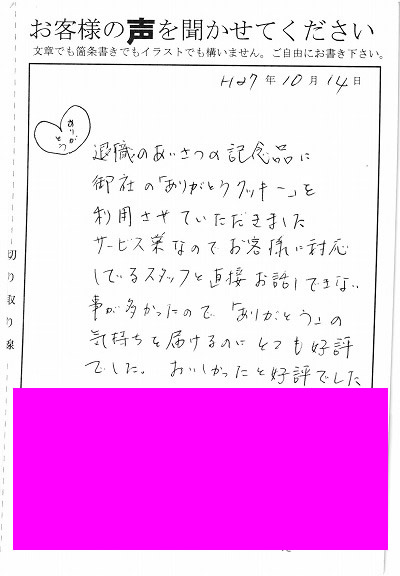 お客様の声を聞かせてください
文章でも箇条書きでもイラストでも構いません。ご自由にお書き下さい。
H27年10月14日
ありがとう
退職のあいさつの記念品に
御社の「ありがとうクッキー」を
利用させていただきました
サービス業なのでお客様に対応
しているスタッフと直接お話しできない
事が多かったので「ありがとう」の
気持ちを届けるのにとても好評
でした。おいしかったと好評でした
切り取り線